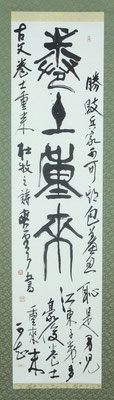 卷土重來
勝敗兵家不可期包羞忍
恥是男兒
江東子弟多
豪俊卷土
重來未
可知
古文卷土重來 杜牧之詩 書